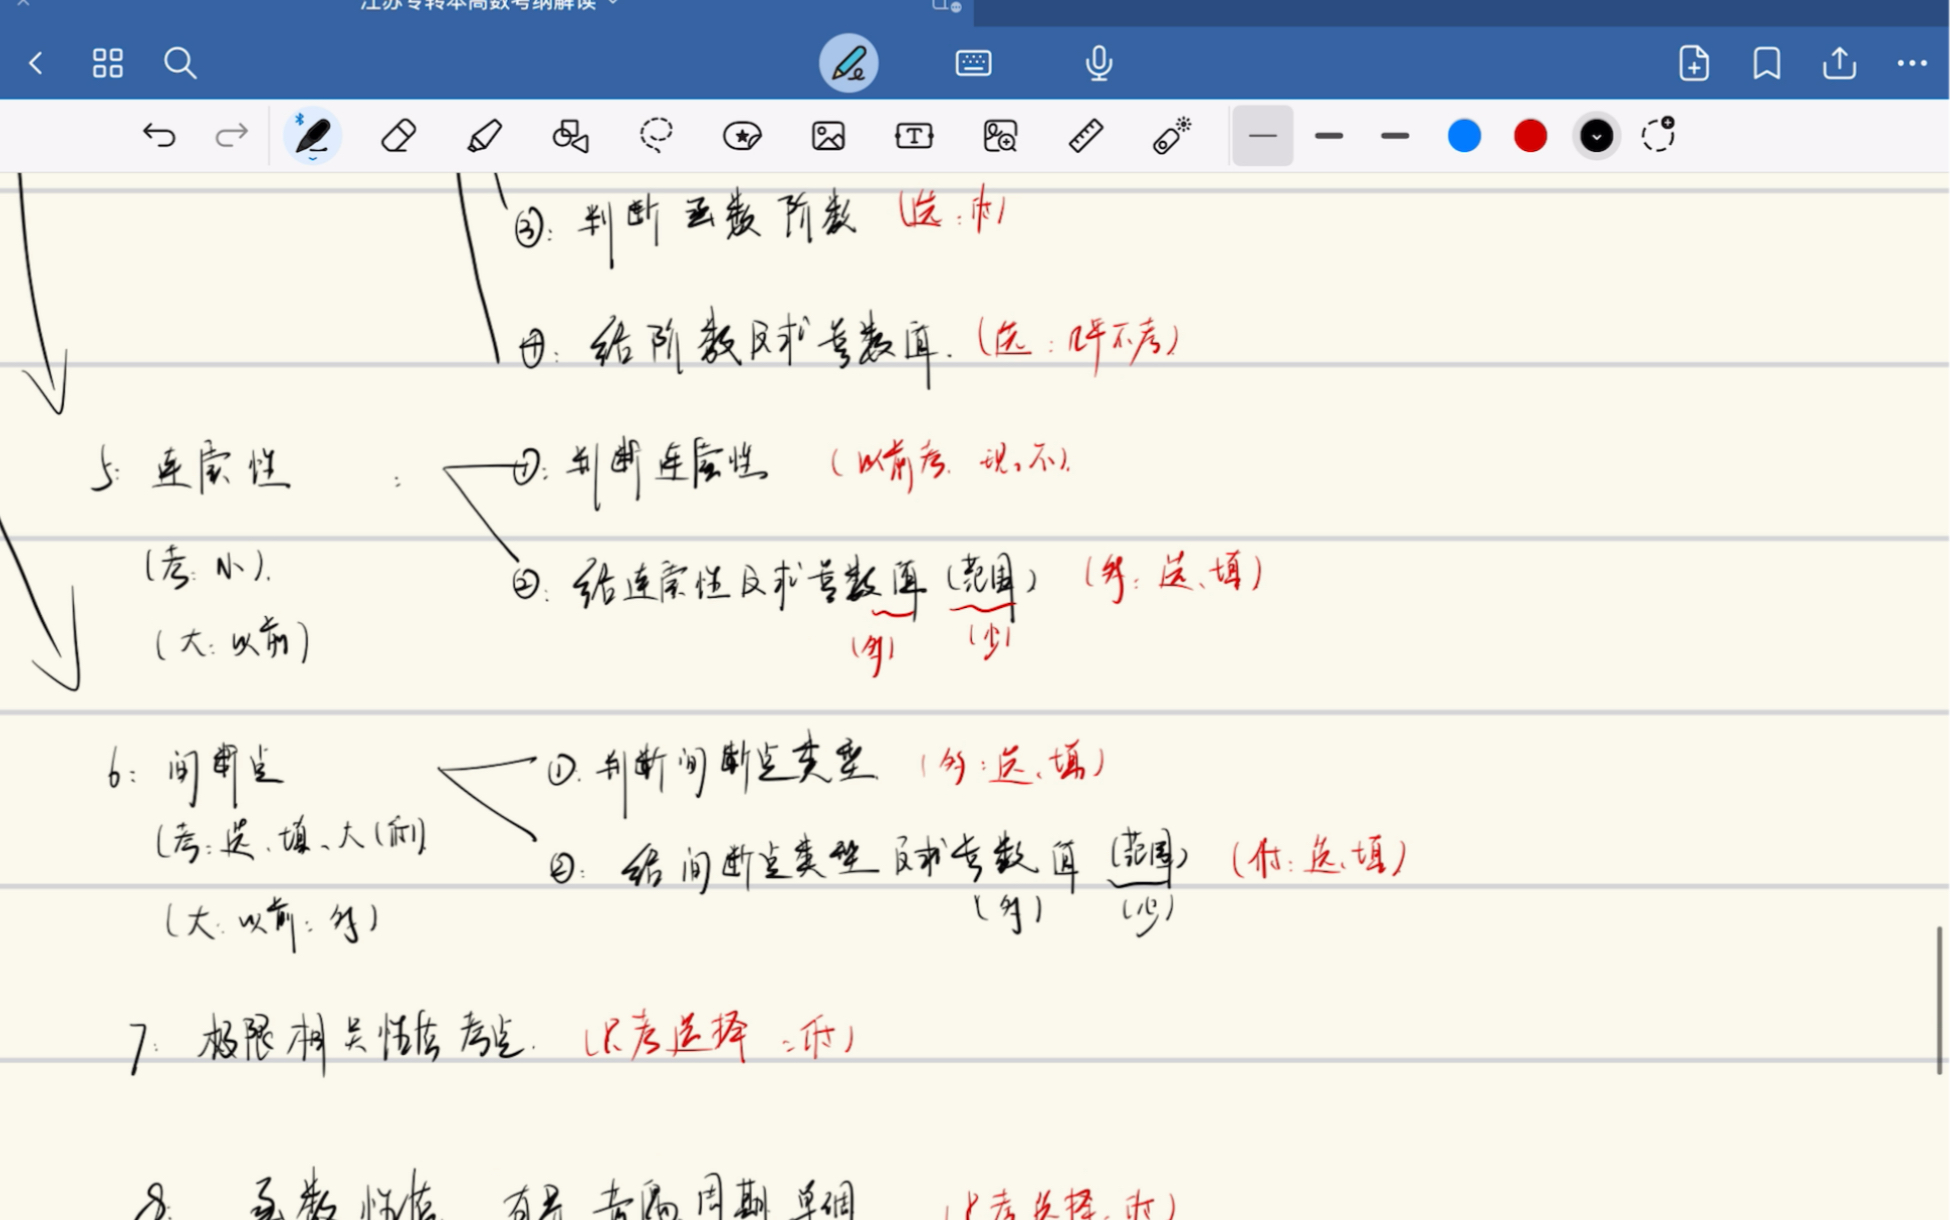 江苏专转本高数考纲解读
③: 判断函数阶数 (选:时)
④: 给阶数反求参数值. (选:几乎不考)
5: 连续性 : ①: 判断连续性 (以前考. 现:不).
(考: 小). ②: 给连续性反求参数值(范围) (多: 选、填)
(大: 以前) (多) (少)
6: 间断点 ①. 判断间断点类型 (多:选、填)
(考:选、填、大(时) ②: 给间断点类型反求参数值(范围) (时: 选、填)
(大: 以前: 多) (多) (少)
7: 极限相关性质考点. (只考选择:时)
8: 函数性质 有界 奇偶 周期 单调 (只考选择:时)